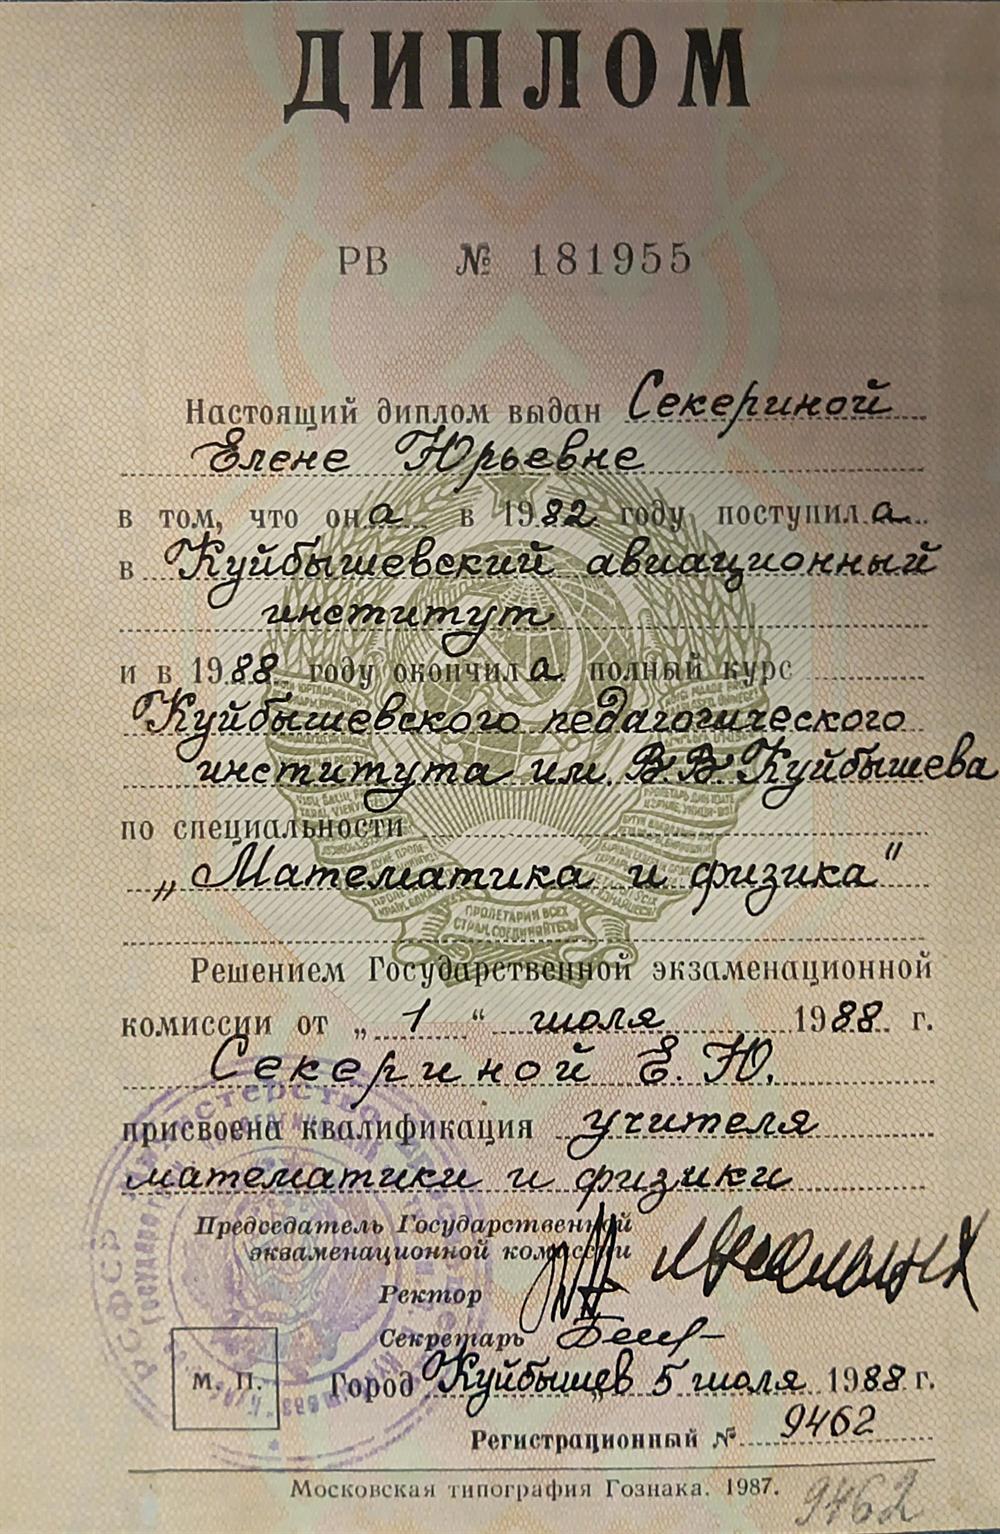 ДИПЛОМ
РВ № 181955
Настоящий диплом выдан Секериной
Елене Юрьевне
в том, что она в 1982 году поступила
в Куйбышевский авиационный
институт
и в 1988 году окончила полный курс
Куйбышевского педагогического
института им. В.В. Куйбышева
по специальности
„Математика и физика"
Решением Государственной экзаменационной
комиссии от „1“ июля 1988 г.
Секериной Е. Ю.
присвоена квалификация учителя
математики и физики
Председатель Государственной
экзаменационной комиссии
Ректор
Секретарь
М. П. Город Куйбышев 5 июля 1988 г.
Регистрационный № 9462
Московская типография Гознака. 1987.
9462
ПРОЛЕТАРИИ ВСЕХ
СТРАН, СОЕДИНЯЙТЕСЬ!